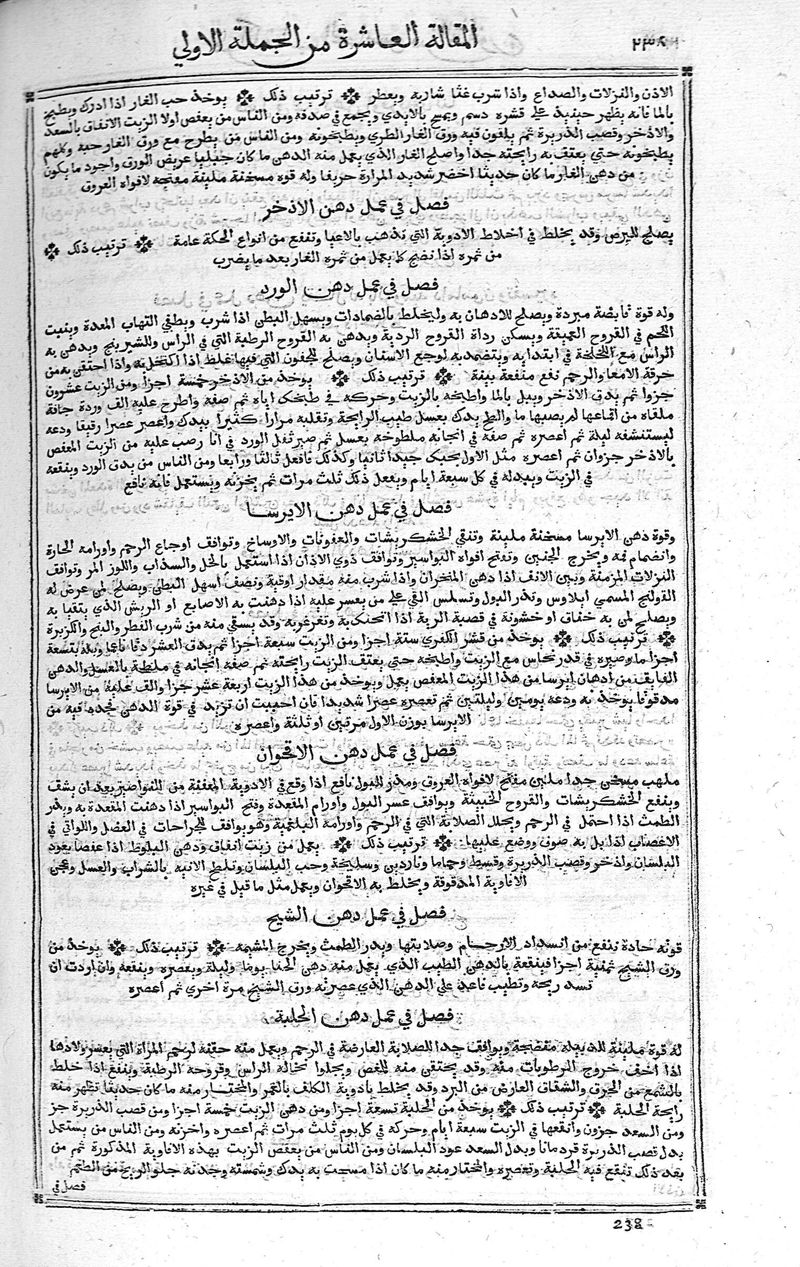 المقالة العاشرة من الجملة الاولي
٢٣٨
الاذن والنزلات والصداع واذا شرب غثا شاربه ويعطر ترتيب ذلك يوخذ حب الغار اذا ادرك ويطبخ
بالما فانه يظهر حينيذ علي قشره دسم ويمسح بالايدي ويجمع في صدفة ومن الناس من يعفص اولا الزيت الانفاق بالسعد
والاذخر وقصب الذريرة ثم يلقون فيه ورق الغار الطري ويطبخونه ومن الناس من يطرح مع ورق الغار حبه وكلهم
يطبخونه حتي يعتف به رايحته جدا واصلح الغار الذي يعمل منه الدهن ما كان جبليا عريض الورق واجود ما يكون
من دهن الغار ما كان حديثا اخضر شديد المرارة حريفا وله قوة مسخنة ملينة مفتحه لافواه العروق
فصل في عمل دهن الاذخر
يصلح للبرص وقد يخلط في اخلاط الادوية التي تذهب بالاعيا وتنفع من انواع الحكة عامة ترتيب ذلك
من ثمره اذا نضج كما يعمل من ثمره الغار بعد ما يضرب
فصل في عمل دهن الورد
وله قوة قابضة مبردة ويصلح للادهان به وليخلط بالضمادات ويسهل البطن اذا شرب ويطفي التهاب المعدة وينبت
اللحم في القروح العميقة ويسكن رداة القروح الردية ويدهن به القروح الرطبة التي في الراس وللشيرينج ويدهن به
الراس مع الخل في ابتدايه ويتضمد به لوجع الاسنان ويصلح للجفون التي فيها غلظ اذا اكتحل به واذا احتقن به من
حرقة الامعا والرحم نفع منفعة بينة ترتيب ذلك يوخذ من الاذخر خمسة اجزا ومن الزيت عشرون
جزوا ثم يدق الاذخر ويبل بالما واطبخه بالزيت وحركه في طبخك اياه ثم صفه واطرح عليه الف وردة جافة
ملقاه من اقماعها لم يصبها ما والطخ يدك بعسل طيب الرايحة وتقلبه مرارا كثيرا بيدك واعصر عصرا رقيقا ودعه
ليستنشفه ليلة ثم اعصره ثم صفه في انجانه ملطوخه بعسل ثم صير ثفل الورد في انا وصب عليه من الزيت المعفص
بالاذخر جزوان ثم اعصره مثل الاول يجبك جيدا ثانيا وكذلك فافعل ثالثا ورابعا ومن الناس من يدق الورد وينقعه
في الزيت ويبدله في كل سبعة ايام ويفعل ذلك ثلث مرات ثم يخزنه ويستعمل فانه نافع
فصل في عمل دهن الايرسا
وقوة دهن الايرسا مسخنة ملينة وتنقي الخشكريشات والعفونات والاوساخ وتوافق اوجاع الرحم واورامه الحارة
وانضمام فمه ويخرج الجنين وتفتح افواه البواسير وتوافق ذوي الاذان اذا استعمل بالخل والسذاب واللوز المر وتوافق
النزلات المزمنة ونتن الانف اذا دهن المنخران واذا شرب منه مقدار اوقية ونصف اسهل البطن ويصلح لمن عرض له
القولنج المسمي ايلاوس وتدر البول وتسلس القي علي من يعسر عليه اذا دهنت به الاصابع او الريش الذي يتقيا به
ويصلح لمن به خناق او خشونة في قصبة الرية اذا اتحنك به وتغرغر به وقد يسقي منه من شرب الفطر والبنج والكزبرة
ترتيب ذلك يوخذ من قشر الكفري ستة اجزا ومن الزيت سبعة اجزا ثم يدق العشر دقا ناعما وبله بتسعة
اجزا ما وصيره في قدر نحاس مع الزيت واطبخه حتي يعتف الزيت رايحته ثم صفه انجانه في ملطخة بالعسل والدهن
الفايق من ادهان ايرسا من هذا الزيت المعفص يعمل ويوخذ من هذا الزيت اربعة عشر جزا والق عليه من الايرسا
مدقوقا يوخذ به ودعه يومين وليلتين ثم تعصره عصرا شديدا فان احببت ان تزيد في قوة الدهن فجدد فيه من
الايرسا بوزن الاول مرتين او ثلثة واعصره
فصل في عمل دهن الاقحوان
ملهب مسخن جدا ملين مفتح لافواه العروق ومدر للبول نافع اذا وقع في الادوية المعفنة من النواصير بعد ان يشق
وينفع الخشكريشات والقروح الخبيثة ويوافق عسر البول واورام المقعدة وفتح البواسير اذا دهنت المقعدة به ويدر
الطمث اذا احتمل في الرحم ويحلل الصلابة التي في الرحم واورامه البلغمية وهو يوافق للجراحات في العضل واللواتي في
الاعصاب اذا بل به صوف ووضع عليها ترتيب ذلك يعمل من زيت انفاق ودهن البلوط اذا عفصا بعود
البلسان واذخر وقصب الذريرة وقسط وحماما وناردين وسليخة وحب البلسان وتلطخ الانيه بالشراب والعسل وعجن
الافاوية المدقوقة ويخلط به الاقحوان ويعمل مثل ما قيل في غيره
فصل في عمل دهن الشيح
قوته حادة تنفع من انسداد الارحام وصلابتها ويدر الطمث ويخرج المشيمه ترتيب ذلك يوخذ من
ورق الشيح ثمنية اجزا فينقعة بالدهن الطيب الذي يعمل منه دهن الحنا يوما وليلة ويعصره وينقعه وان اردت ان
تسد ريحة وتطيب فاعد علي الدهن الذي عصرته ورق الشيح مرة اخري ثم اعصره
فصل في عمل دهن الحلبة
له قوة ملينة للدبيله منضجة ويوافق جدا للصلابة العارضة في الرحم ويعمل منه حقنة لرحم المراة التي يعسر ولادها
اذا اخف خروج الرطوبات منه وقد يحتقن منه للمغص ويجلوا نخالة الراس وقروحه الرطبة وينفع اذا خلط
بالشمع من الحرق والشقاق العارض من البرد وقد يخلط بادوية الكلف بالتمر والمختار منه ما كان حديثا تظهر منه
رايحة الحلبة ترتيب ذلك يوخذ من الحلبة تسعة اجزا ومن دهن الزيت خمسة اجزا ومن قصب الذريرة جز
ومن السعد جزون وانقعها في الزيت سبعة ايام وحركة في كل يوم ثلث مرات ثم اعصره واخزنه ومن الناس من يستعمل
بدل قصب الذريرة قردمانا وبدل السعد عود البلسان ومن الناس من يعفص الزيت بهذه الافاوية المذكورة ثم من
بعد ذلك تنقع فيه الحلبة وتعصره والمختار منه ما كان اذا مسحت به يدك وشممته وجدته حلو الريح من الطعم
فصل في
238